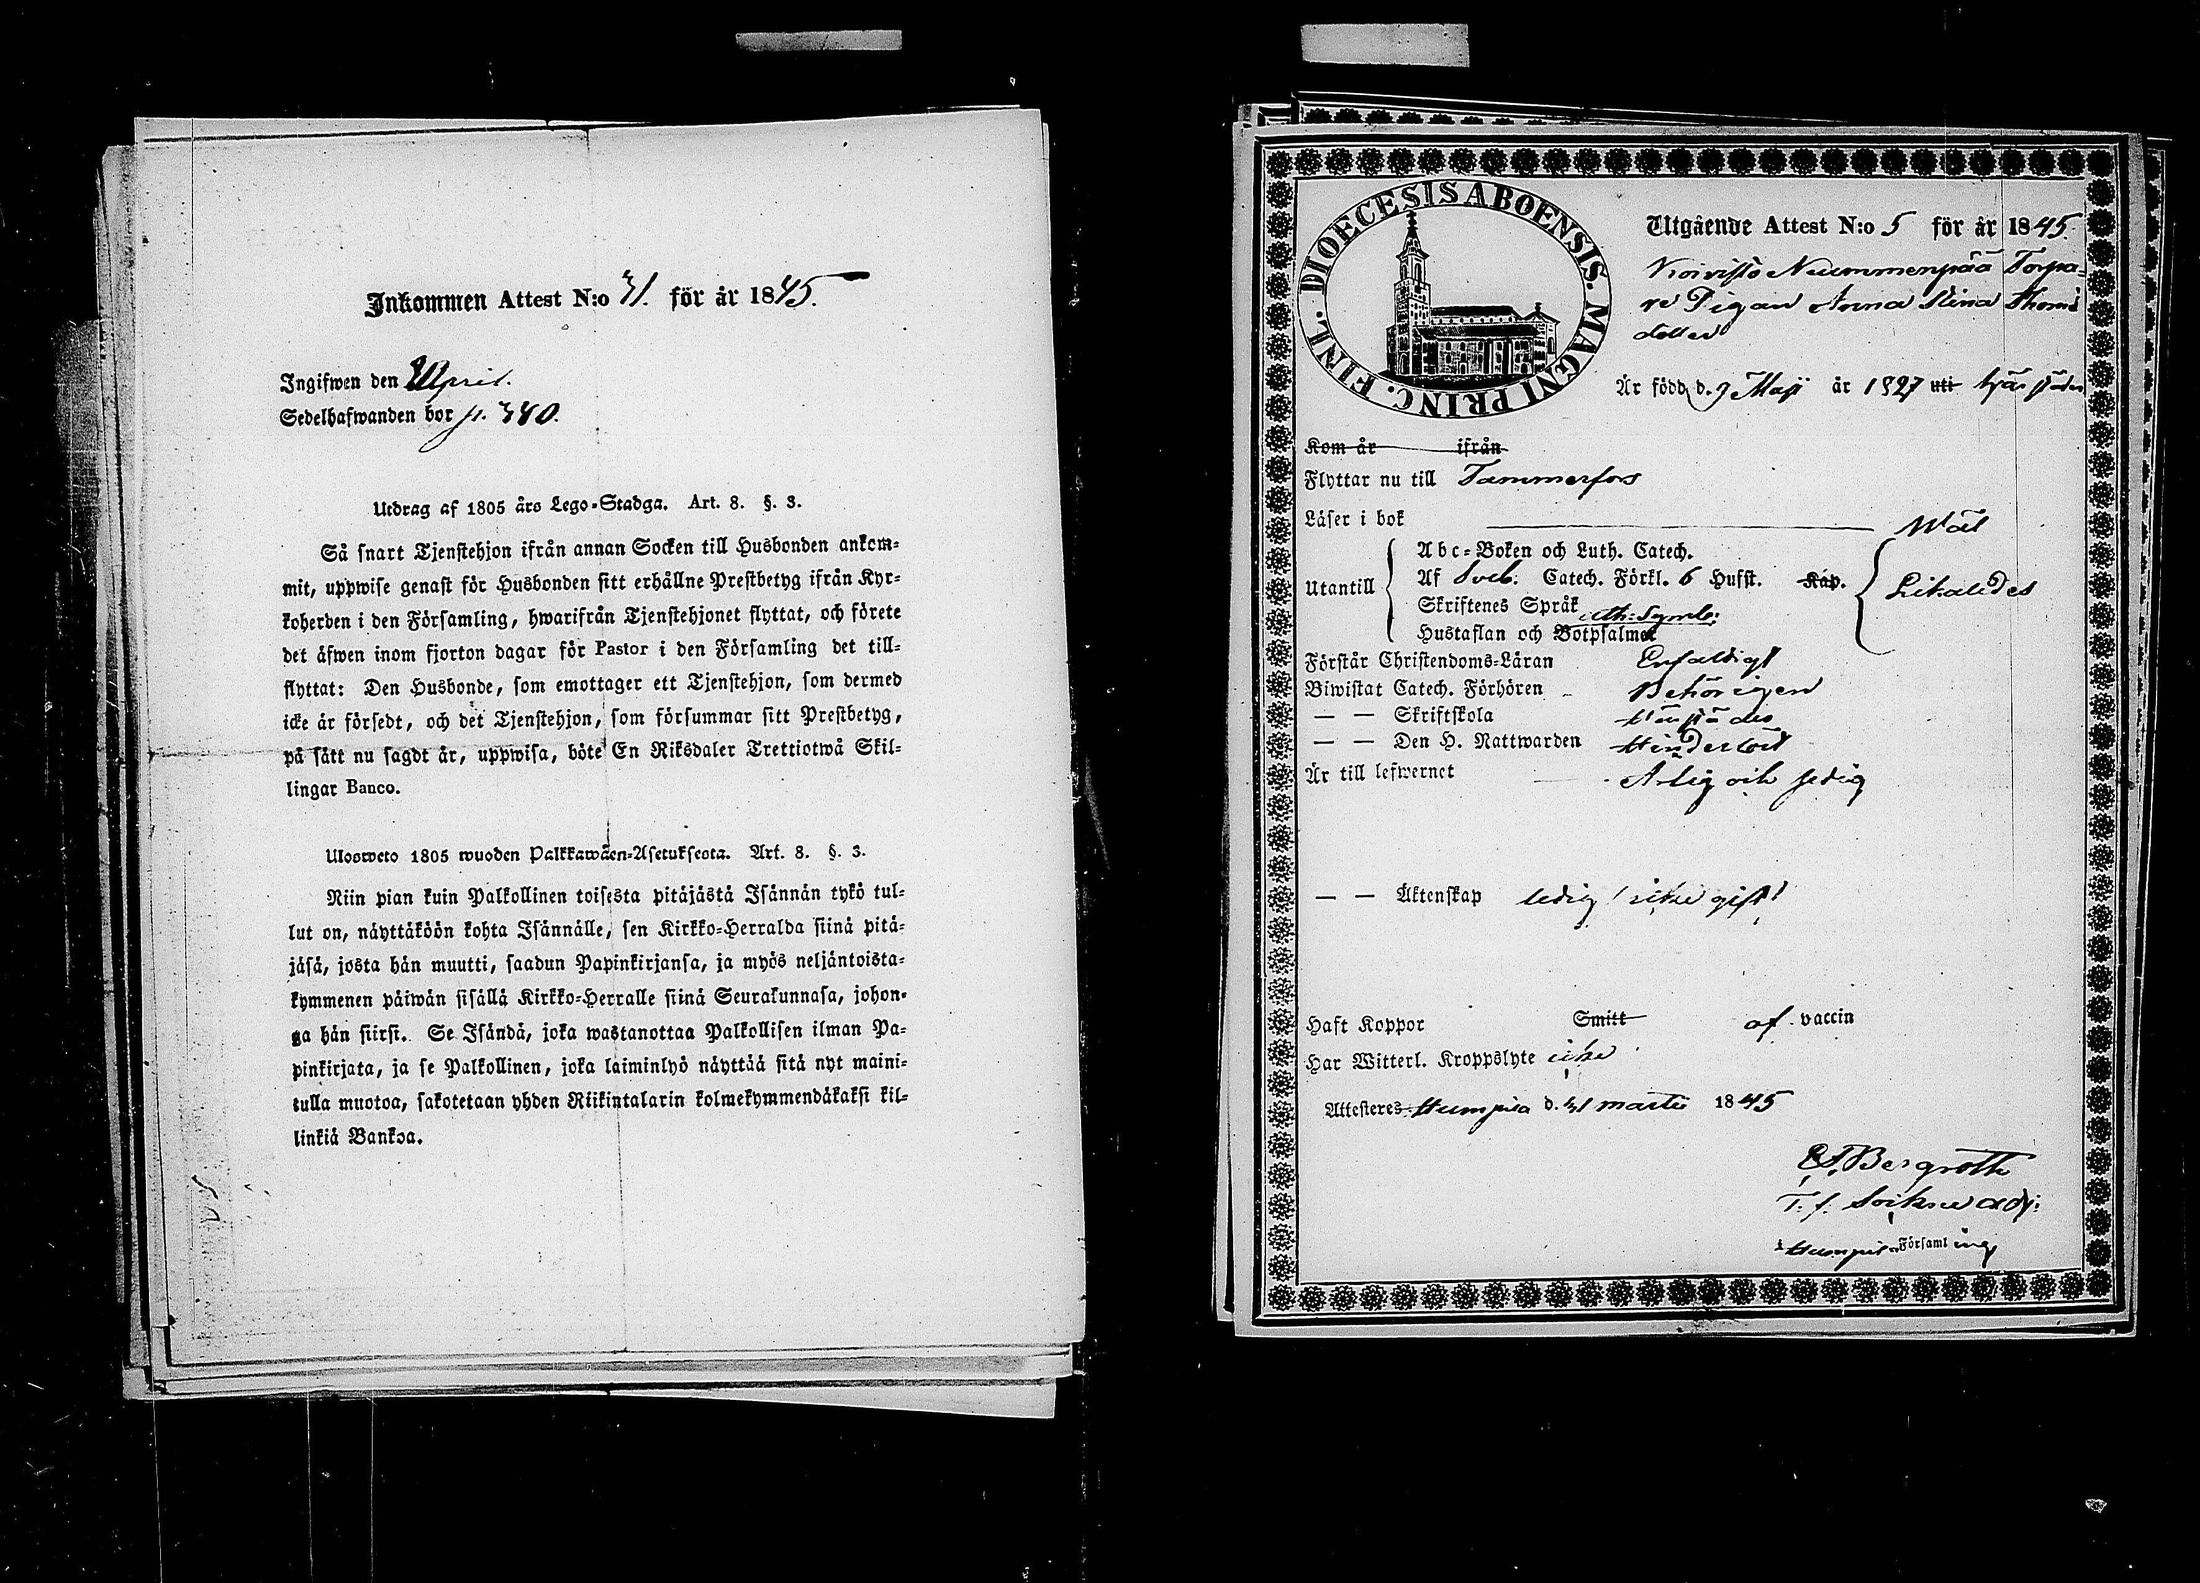 Inkommen Attest N:o 31. för år 1845.
Ingifwen den April.
Sedelhafwanden bor p. 340.
Utdrag af 1805 års Lego-Stadga. Art. 8. §. 3.
Så snart Tjenstehjon ifrån annan Socken till Husbonden ankom-
mit, uppwise genast för Husbonden sitt erhållne Prestbetyg ifrån Kyr-
koherden i den Församling, hwarifrån Tjenstehjonet flyttat, och förete
det äfwen inom fjorton dagar för Pastor i den Församling det till-
flyttat: Den Husbonde, som emottager ett Tjenstehjon, som dermed
icke är försedt, och det Tjenstehjon, som försummar sitt Prestbetyg,
på sätt nu sagdt är, uppwisa, böte En Riksdaler Trettiotwå Skil-
lingar Banco.
Ulosweto 1805 wuoden Palkkawäen-Asetuksesta. Art. 8. §. 3.
Niin pian kuin Palkollinen toisesta pitäjästä Isännän tykö tul-
lut on, näyttäköön kohta Isännälle, sen Kirkko-Herralda siinä pitä-
jäsä, josta hän muutti, saadun Papinkirjansa, ja myös neljäntoista-
kymmenen päiwän sisällä Kirkko-Herralle siinä Seurakunnasa, johon-
ga hän siirsi. Se Isändä, joka wastanottaa Palkollisen ilman Pa-
pinkirjata, ja se Palkollinen, joka laiminlyö näyttää sitä nyt maini-
tulla muotoa, sakotetaan yhden Riikintalarin kolmekymmendäkaksi kil-
linkiä Bankoa.
DIOECESIS ABOENSIS. MAGNI PRINC. FINL.
Utgående Attest N:o 5 för år 1845.
Koivisto Nummenpää Torpa-
re Pigan Anna Stina Thoms
dotter
Är född d. 9 Maji år 1827 uti härstädes
Kom år ifrån
Flyttar nu till Tammerfors
Läser i bok Wäl
Utantill
Abc-Boken och Luth. Catech.
Af Sveb. Catech. Förkl. 6 Hufst. Kap.
Skriftenes Språk
Ath: Symb:
Hustaflan och Botpsalmer
Likaledes
Förstår Christendoms-Läran Enfaldigt
Biwistat Catech. Förhören Behörigen
— — Skriftskola härstädes
— — Den H. Nattwarden Hinderlöst
Är till lefwernet Ärlig och sedig
— — Äktenskap ledig icke gift
Haft Koppor Smitt af vaccin
Har Witterl. Kroppslyte icke
Attesteres Humpila d. 31 martii 1845
Bergroth
T. f. Sockne adj:
i Humpila Församling